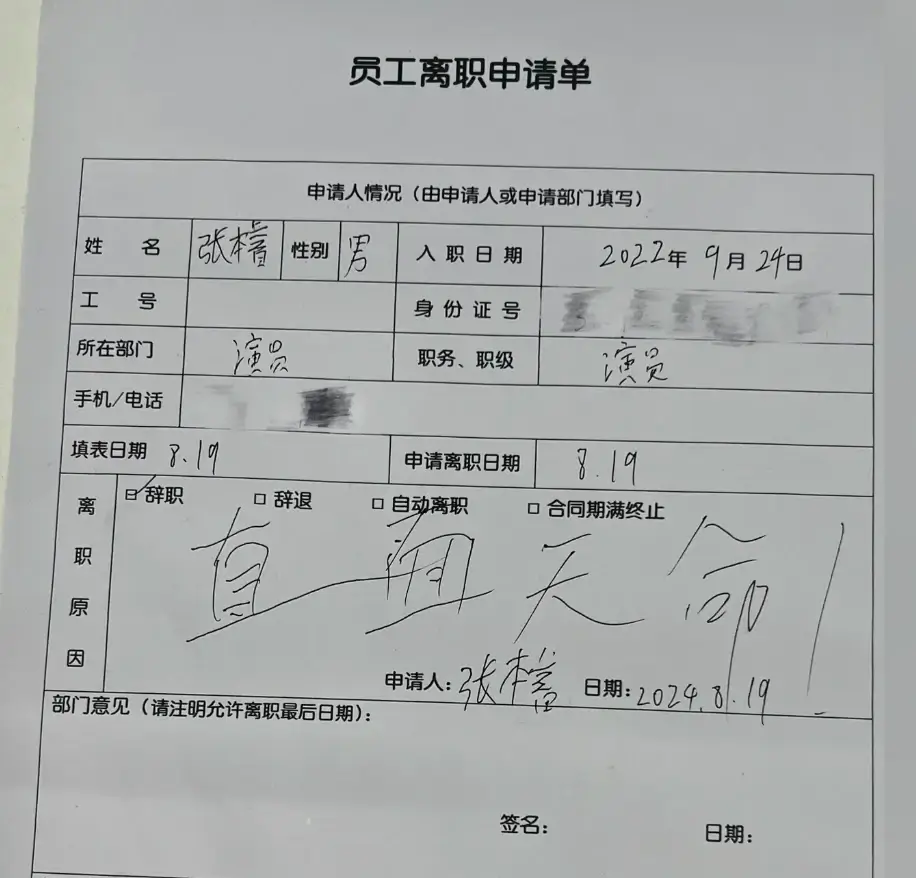 员工离职申请单
申请人情况（由申请人或申请部门填写）
姓 名 张本 性别 男 入职日期 2022年9月24日
工 号 身份证号
所在部门 演员 职务、职级 演员
手机/电话
填表日期 8.19 申请离职日期 8.19
离职原因 ☑辞职 □辞退 □自动离职 □合同期满终止
直面天命！
申请人：张本 日期：2024.8.19
部门意见（请注明允许离职最后日期）：
签名： 日期：